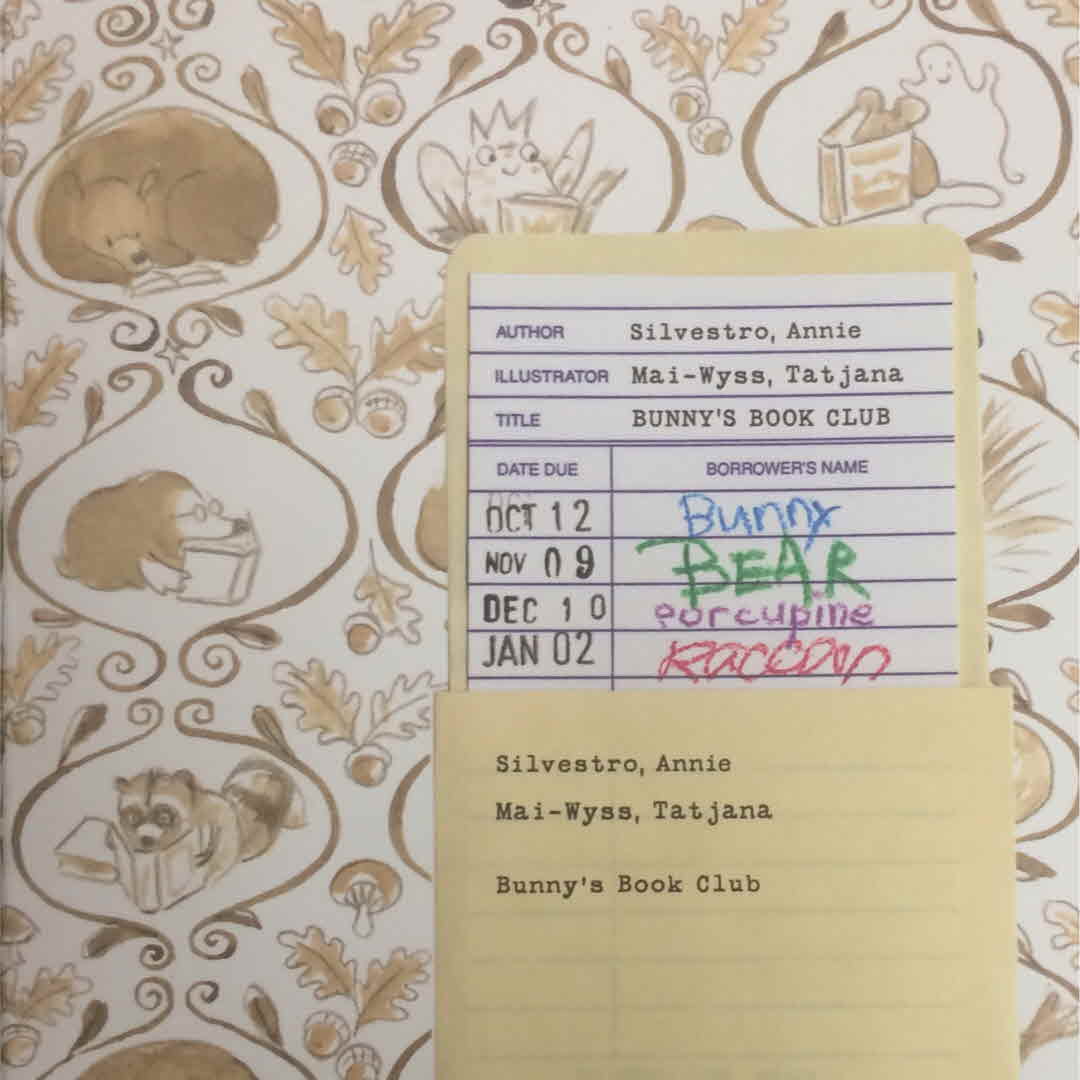 AUTHOR Silvestro, Annie
ILLUSTRATOR Mai-Wyss, Tatjana
TITLE BUNNY'S BOOK CLUB
DATE DUE BORROWER'S NAME
OCT 12 Bunny
NOV 09 BEAR
DEC 10 porcupine
JAN 02 Raccoon
Silvestro, Annie
Mai-Wyss, Tatjana
Bunny's Book Club